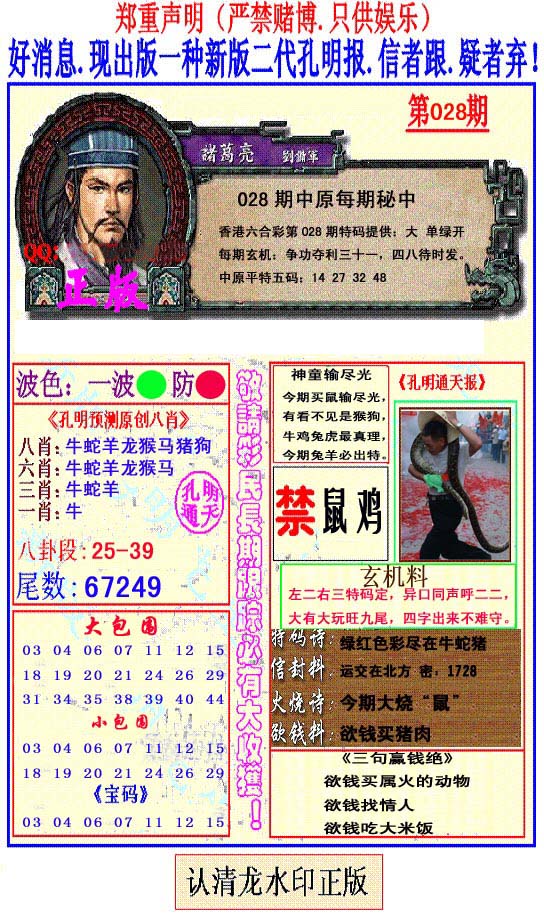 郑重声明（严禁赌博.只供娱乐）
好消息.现出版一种新版二代孔明报.信者跟.疑者弃!
第028期
諸葛亮 劉備軍
028 期中原每期秘中
香港六合彩第 028 期特码提供：大 单绿开
每期玄机：争功夺利三十一，四八待时发。
中原平特五码：14 27 32 48
QQ:
正版
波色：一波 防
《孔明预测原创八肖》
八肖:牛蛇羊龙猴马猪狗
六肖:牛蛇羊龙猴马
三肖:牛蛇羊
一肖:牛
孔明
通天
八卦段:25-39
尾数:67249
大包围
03 04 06 07 11 12 15
18 19 20 21 24 26 29
31 34 35 38 39 40 44
小包围
03 04 06 07 11 12 15
18 19 20 21 24 26 29
《宝码》
03 04 06 07 11 12 15
敬請彩民長期跟踪必有大收獲！
神童输尽光
今期买鼠输尽光，
有看不见是猴狗，
牛鸡兔虎最真理，
今期兔羊必出特。
《孔明通天报》
禁鼠鸡
玄机料
左二右三特码定，异口同声呼二二，
大有大玩旺九尾，四字出来不难守。
特码诗:绿红色彩尽在牛蛇猪
信封料:运交在北方 密：1728
火烧诗:今期大烧“鼠”
欲钱料:欲钱买猪肉
《三句赢钱绝》
欲钱买属火的动物
欲钱找情人
欲钱吃大米饭
认清龙水印正版